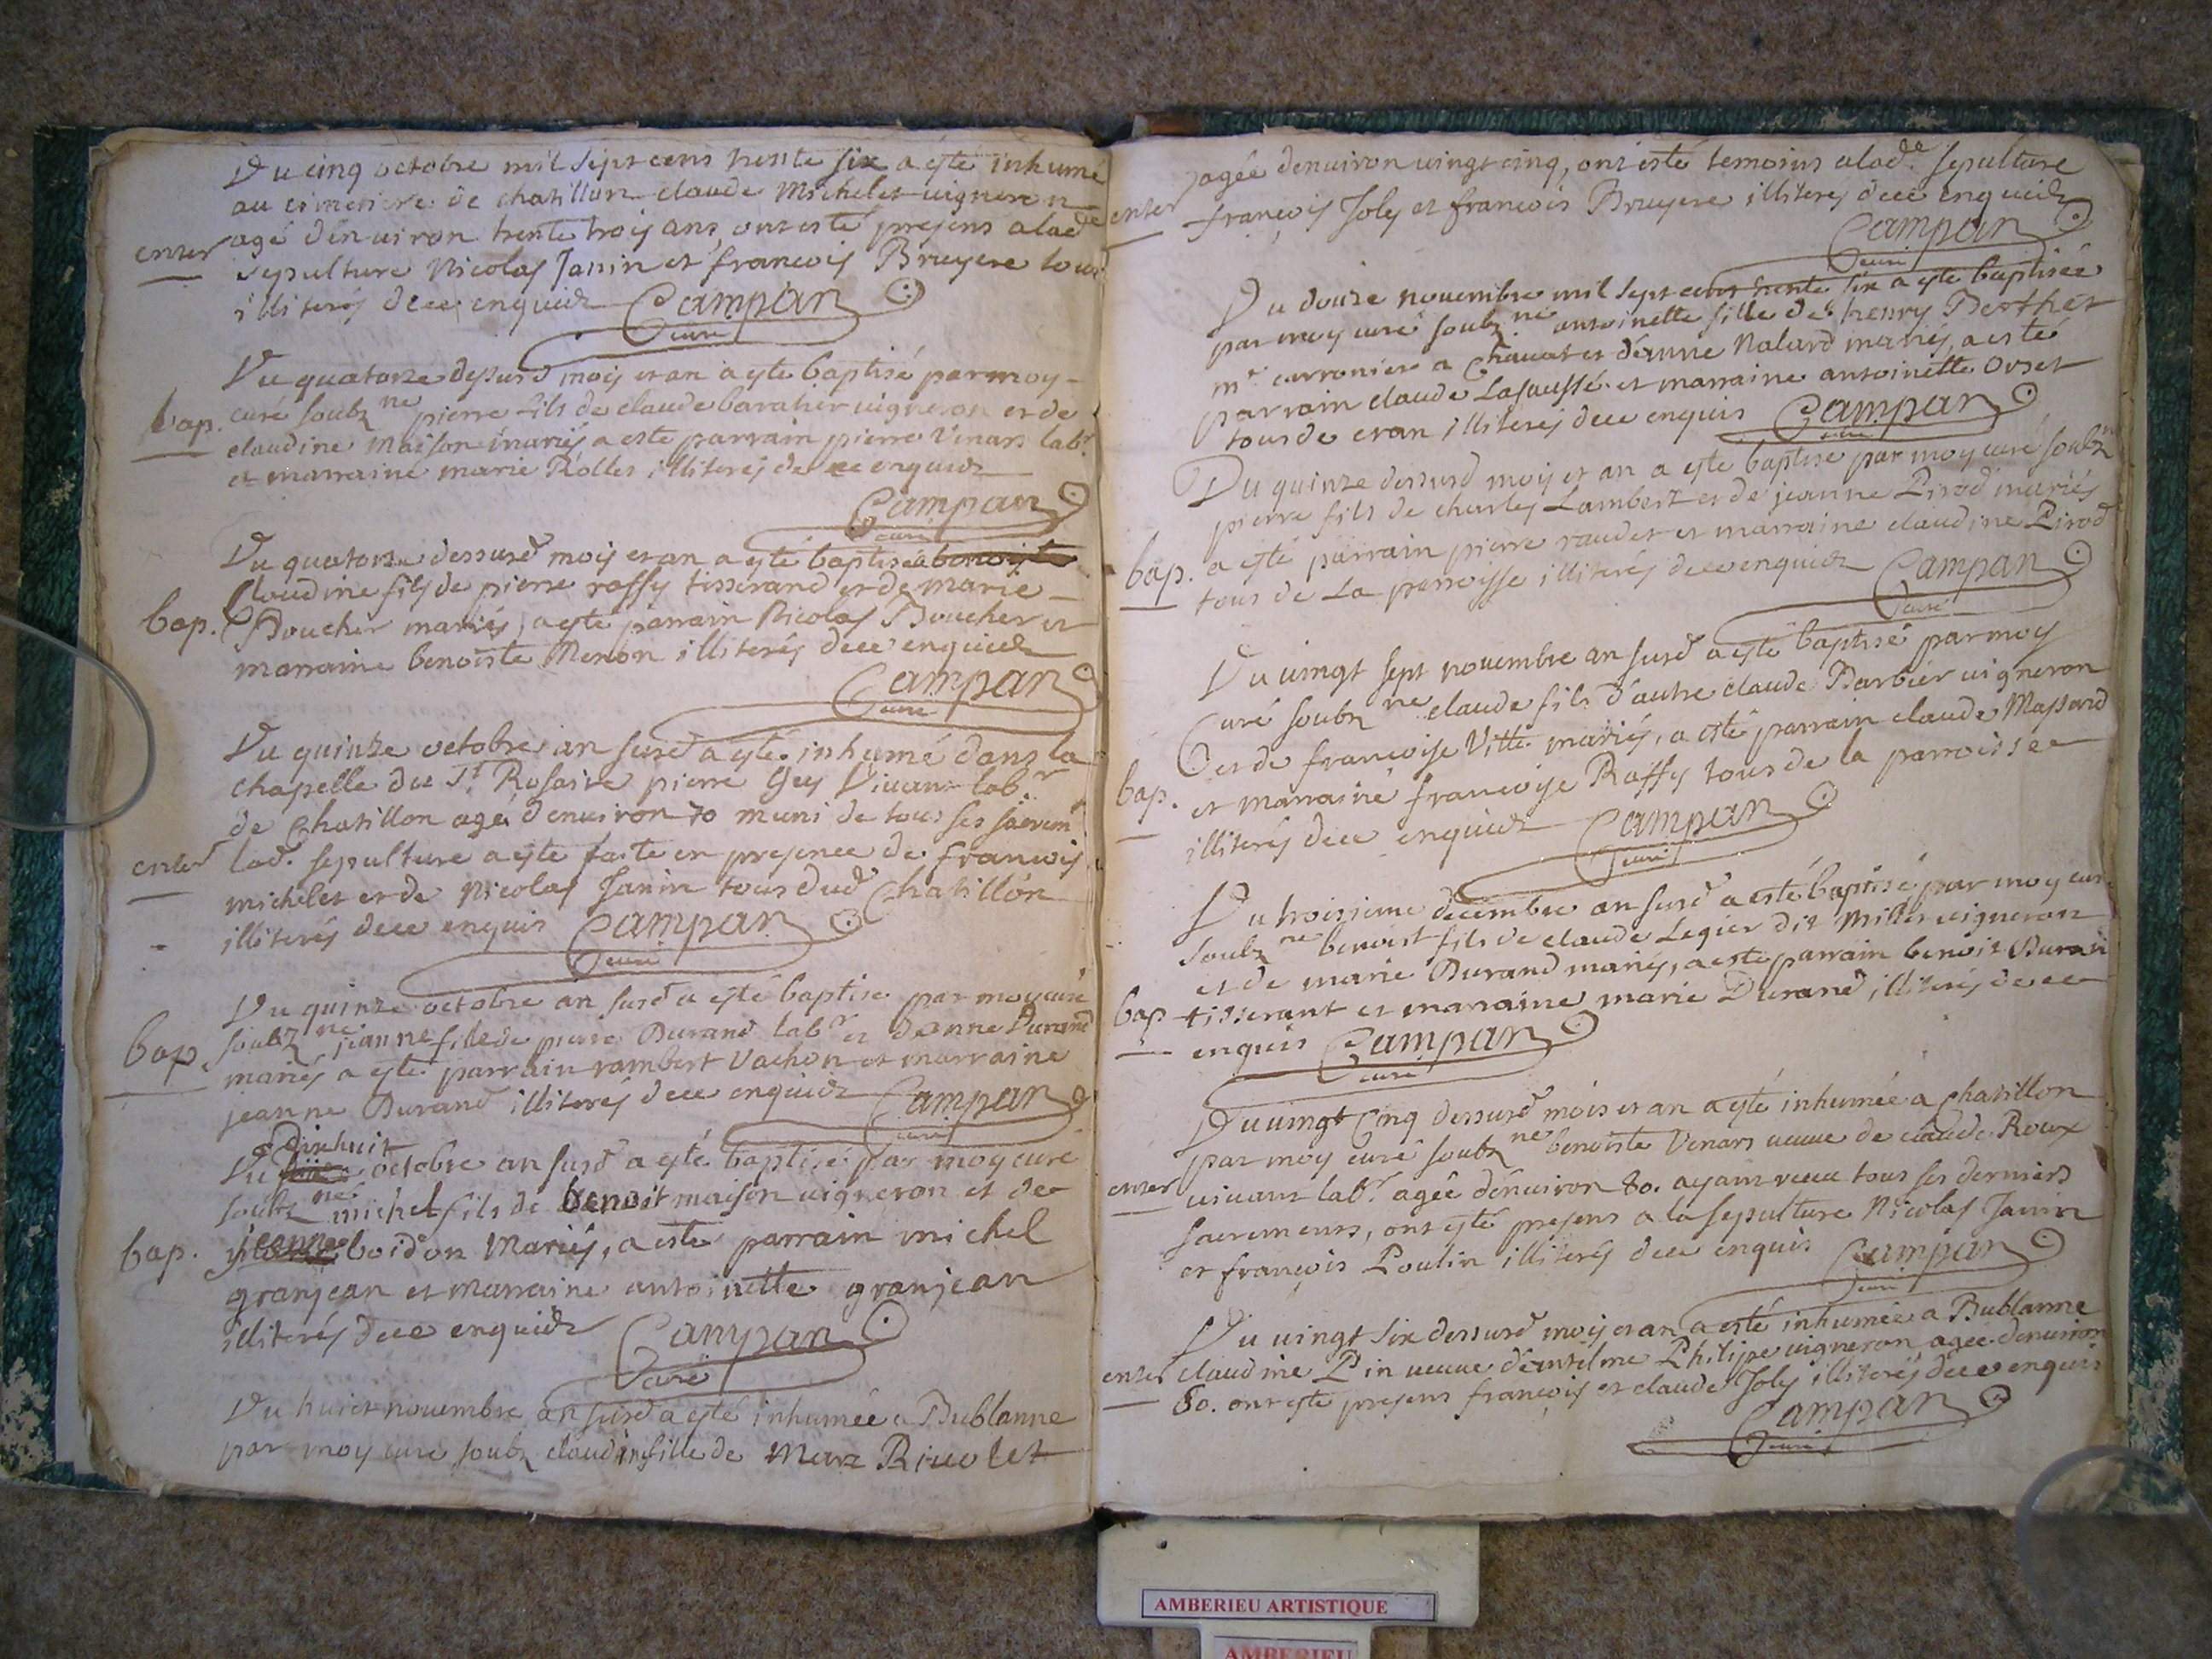 Du cinq octobre mil sept cens trente six a esté inhumé
au cimetiere de chatillon claude Michelet vigneron
enter agé d'environ trente trois ans, ont esté presens a lade
sepulture Nicolas Janin et francois Bruyere tous
illiterés de ce enquis Campan
curé
Du quatorze dessusd mois et an a esté baptisé par moy
bap. curé soubzne pierre fils de claude baratier vigneron et de
claudine Maison mariés a esté parrain pierre Venars labr
et marraine marie Rolles illiterés de ce enquis
Campan
curé
Du quatorze dessusd mois et an a esté baptisée benoiste
Claudine fils de pierre raffy tisserand et de marie
bap. Boucher mariés, a esté parrain Nicolas Boucher et
marraine benoiste Menon illiterés de ce enquis
Campan
curé
Du quinze octobre an susd a esté inhumé dans la
chapelle du St Rosaire pierre Guy vivant labr
de Chatillon agé d'environ 70 muni de tous ses sacrem
enter lad. sepulture a esté faite en presence de francois
michelet et de Nicolas Janin tous dud Chatillon
illiterés de ce enquis Campan
curé
Du quinze octobre an susd a esté baptisé par moy curé
bap soubzne jeanne fille de pierre Durand labr et d'anne Durand
mariés a esté parrain rambert Vachon et marraine
jeanne Durand illiterés de ce enquis Campan
curé
dixhuit
Du octobre an susd a esté baptisé par moy curé
soubzne michel fils de benoit maison vigneron et de
bap. jeanne boidon Mariés, a esté parrain michel
granjean et marraine antoinette granjean
illiterés de ce enquis Campan
curé
Du huict novembre an susd a esté inhumée a Bublanne
par moy curé soubz claudine fille de Marc Rivolet
agée d'environ vingt cinq, ont esté temoins a lade sepulture
enter francois Joly et francois Bruyere illiterés de ce enquis
Campan
curé
Du douze novembre mil sept cens trente six a esté baptisée
par moy curé soubzne antoinette fille de henry Berthet
mr carronier a Chavat et d'anne Nalard mariés, a esté
parrain claude Lasaussé et marraine antoinette Orset
tous de illiterés de ce enquis Campan
curé
Du quinze dessusd mois et an a esté baptisé par moy curé soubzn
pierre fils de charles Lambert et de jeanne Pirod mariés
bap. a esté parrain pierre raudet et marraine claudine Pirod
tous de La parroisse illiterés de ce enquis Campan
curé
Du vingt sept novembre an susd a esté baptisé par moy
Curé soubzne claude fils d'autre claude Barbier vigneron
et de francoise Vitte mariés, a esté parrain claude Massard
bap. et marraine francoise Raffy tous de la parroisse
illiterés de ce enquis Campan
curé
Du troisieme decembre an susd a esté baptisé par moy curé
soubzne benoist fils de claude Legier dit Millet vigneron
et de marie Durand mariés, a esté parrain benoit Duran
bap tisserant et marraine marie Durand illiterés de ce
enquis Campan
curé
Du vingt Cinq dessusd mois et an a esté inhumée a chatillon
par moy curé soubzne benoiste Venars veuve de claude Roux
enter vivant labr agée d'environ 80. ayant receu tous ses derniers
sacremens, ont esté presens a la sepulture Nicolas Janin
et françois Poulin illiterés de ce enquis Campan
curé
Du vingt six dessusd mois et an a esté inhumée a Bublanne
enter claudine Pin veuve d'antelme Philippe vigneron agée d'environ
80. ont esté presens françois et claude Joly illiterés de ce enquis
Campan
curé
AMBERIEU ARTISTIQUE
AMBERIEU